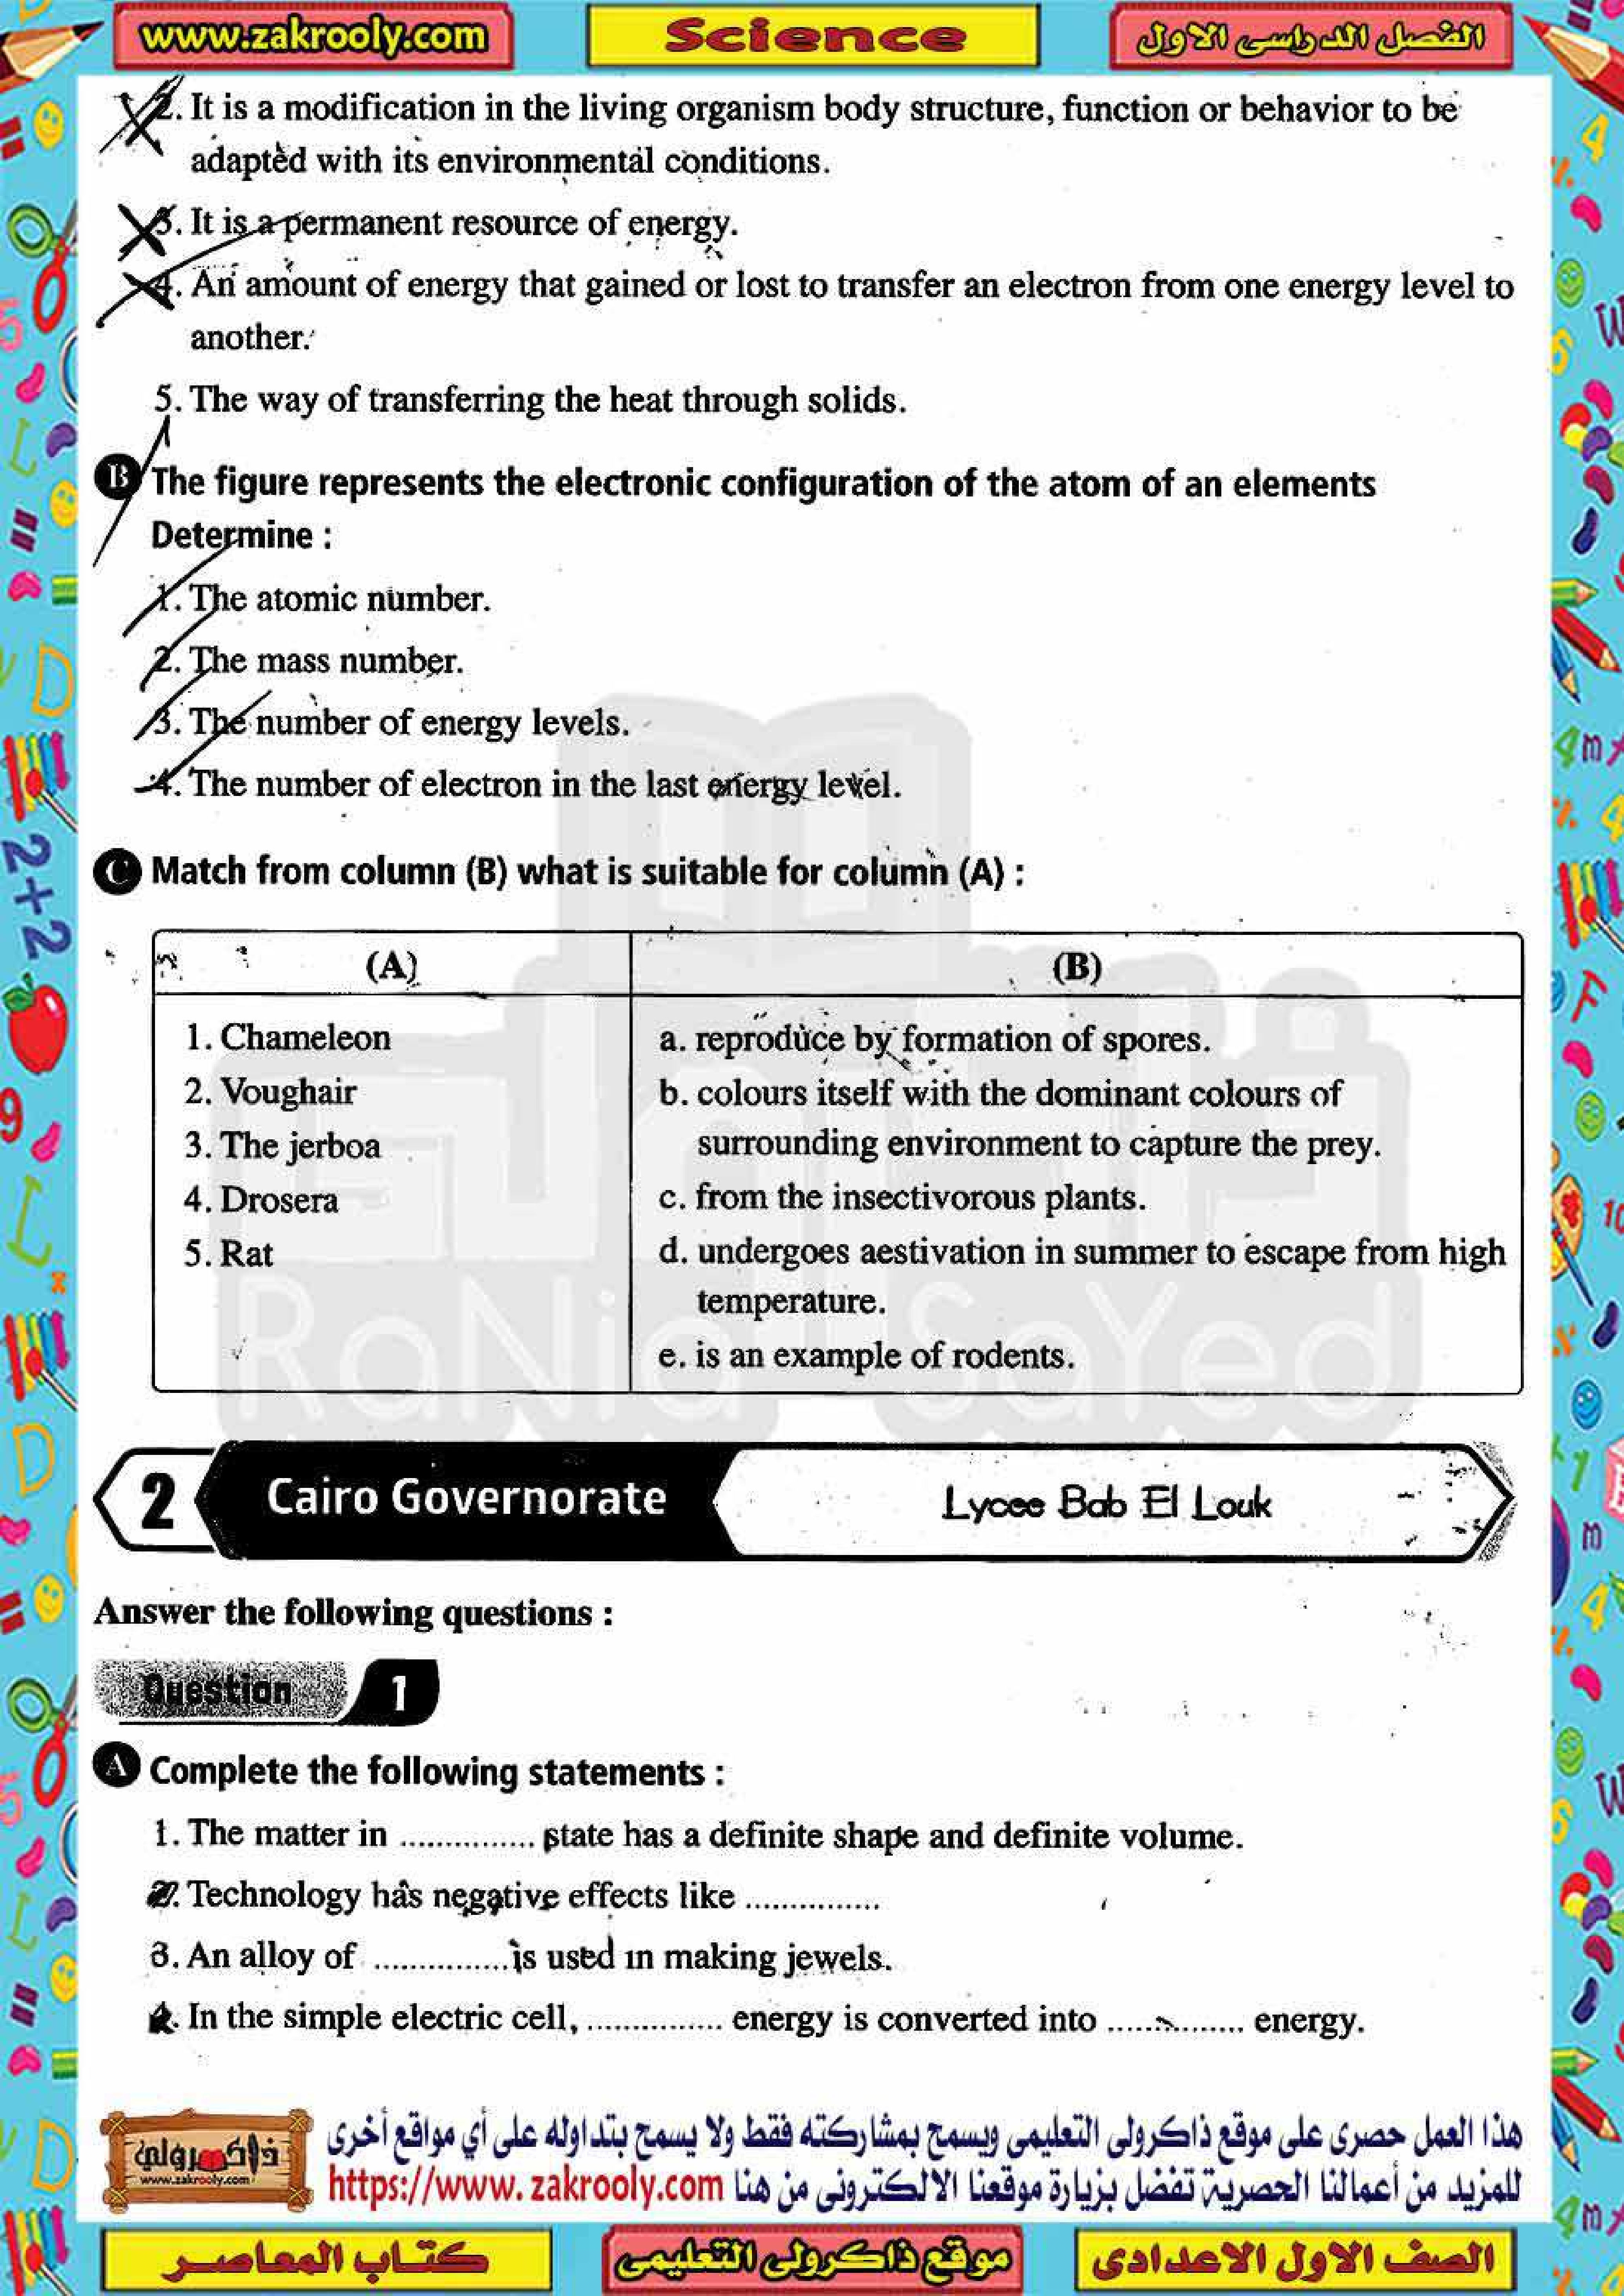 www.zakrooly.com
Science
الفصل الدراسى الاول
2. It is a modification in the living organism body structure, function or behavior to be
adapted with its environmental conditions.
3. It is a permanent resource of energy.
4. An amount of energy that gained or lost to transfer an electron from one energy level to
another.
5. The way of transferring the heat through solids.
B The figure represents the electronic configuration of the atom of an elements
Determine :
1. The atomic number.
2. The mass number.
3. The number of energy levels.
4. The number of electron in the last energy level.
C Match from column (B) what is suitable for column (A) :
(A)
(B)
1. Chameleon
2. Voughair
3. The jerboa
4. Drosera
5. Rat
a. reproduce by formation of spores.
b. colours itself with the dominant colours of
surrounding environment to capture the prey.
c. from the insectivorous plants.
d. undergoes aestivation in summer to escape from high
temperature.
e. is an example of rodents.
RaNia SaYed
2 Cairo Governorate
Lycee Bab El Louk
Answer the following questions :
Question 1
A Complete the following statements :
1. The matter in ............... state has a definite shape and definite volume.
2. Technology has negative effects like ...............
3. An alloy of ............... is used in making jewels.
4. In the simple electric cell, ............... energy is converted into ............... energy.
ذاكرولي
www.zakrooly.com
هذا العمل حصرى على موقع ذاكرولى التعليمى ويسمح بمشاركته فقط ولا يسمح بتداوله على أي مواقع أخرى
للمزيد من أعمالنا الحصرية تفضل بزيارة موقعنا الالكترونى من هنا https://www.zakrooly.com
كتاب المعاصر
موقع ذاكرولى التعليمى
الصف الاول الاعدادى